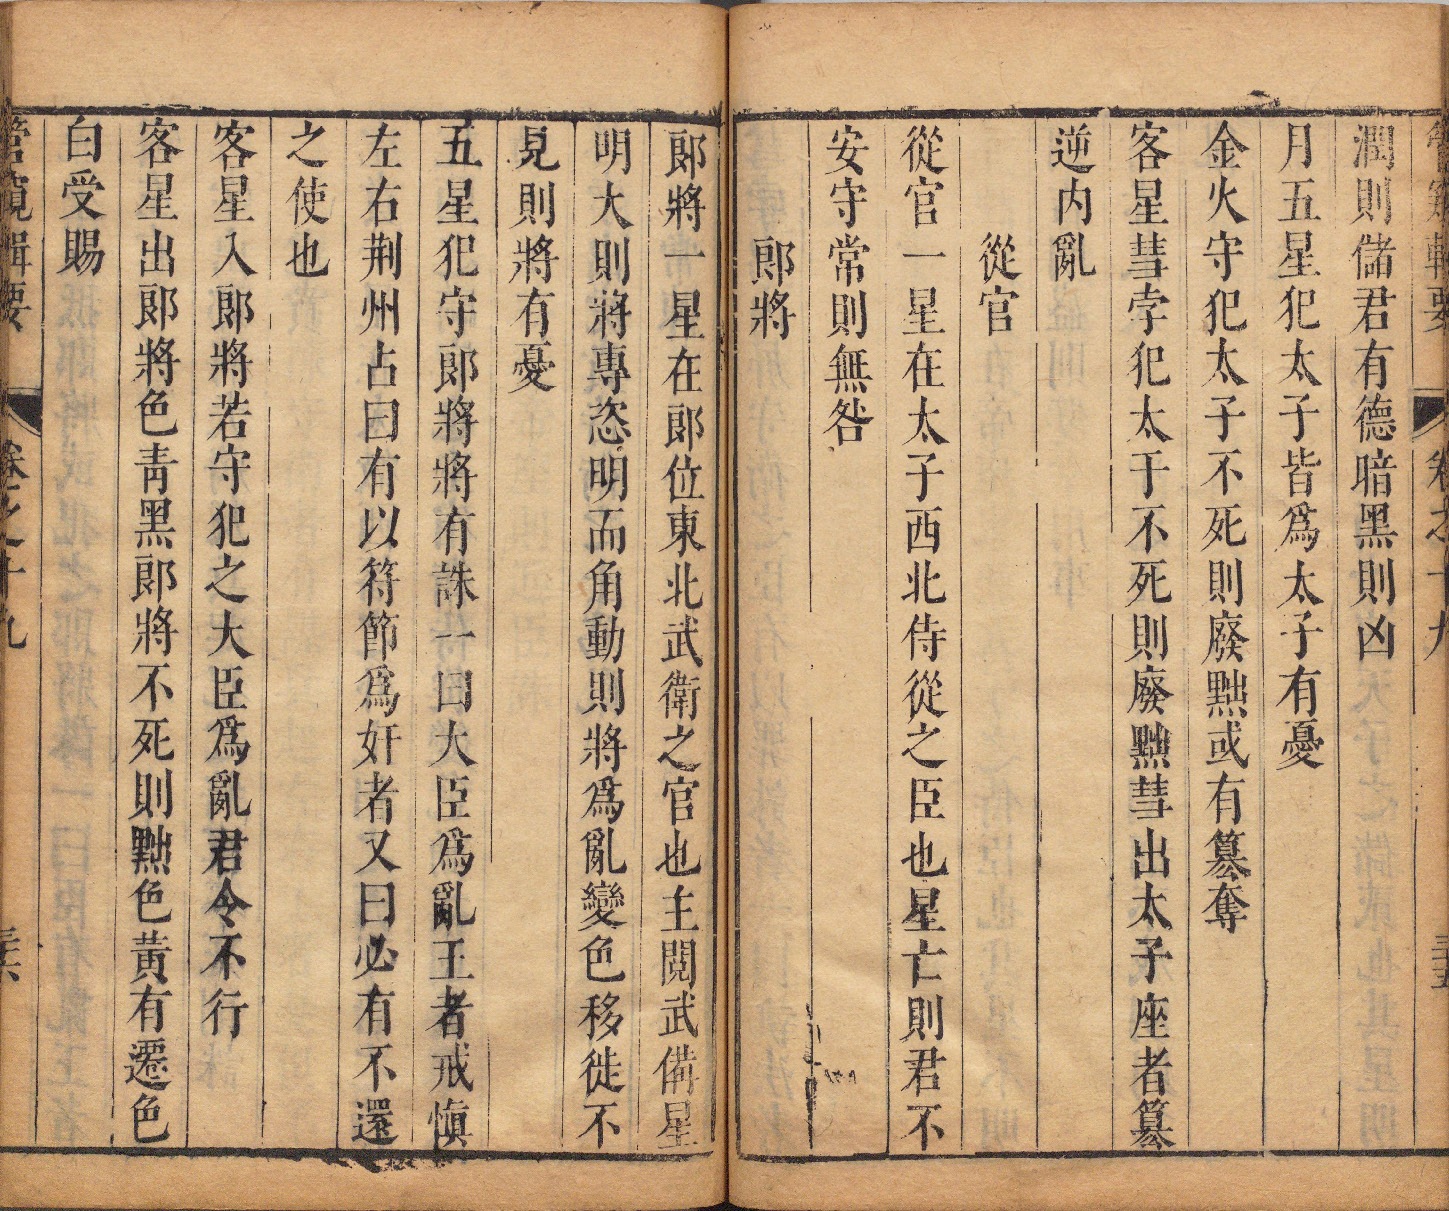 管窺輯要 卷之十九 三十五
潤則儲君有德暗黑則凶
月五星犯太子皆爲太子有憂
金火守犯太子不死則廢黜或有篡奪
客星彗孛犯太子不死則廢黜彗出太子座者篡
逆內亂
從官
從官一星在太子西北侍從之臣也星亡則君不
安守常則無咎
郞將
郞將一星在郞位東北武衛之官也主閱武備星
明大則將專恣明而角動則將爲亂變色移徙不
見則將有憂
五星犯守郞將將有誅一曰大臣爲亂王者戒愼
左右荆州占曰有以符節爲奸者又曰必有不還
之使也
客星入郞將若守犯之大臣爲亂君令不行
客星出郞將色靑黑郞將不死則黜色黃有遷色
白受賜
管窺輯要 卷之十九 三十六